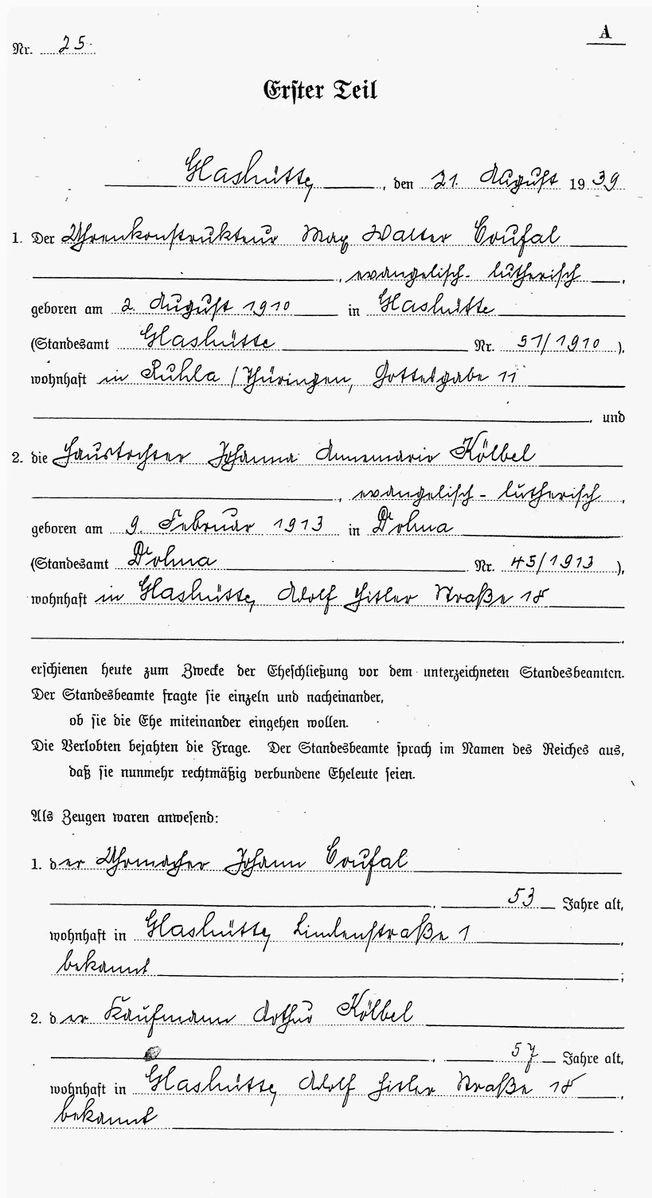 A
Nr. 25.
Erster Teil
Glashütte, den 21. August 1939
1. Der Uhrenkonstrukteur Max Walter Coufal
, evangelisch-lutherisch,
geboren am 2. August 1910 in Glashütte
(Standesamt Glashütte Nr. 51/1910),
wohnhaft in Ruhla/Thüringen, Gottesgabe 11
, und
2. die Haustochter Johanna Annemarie Kölbel
, evangelisch-lutherisch,
geboren am 9. Februar 1913 in Dohna
(Standesamt Dohna Nr. 45/1913),
wohnhaft in Glashütte, Adolf Hitler Straße 18
.
erschienen heute zum Zwecke der Eheschließung vor dem unterzeichneten Standesbeamten.
Der Standesbeamte fragte sie einzeln und nacheinander,
ob sie die Ehe miteinander eingehen wollen.
Die Verlobten bejahten die Frage. Der Standesbeamte sprach im Namen des Reiches aus,
daß sie nunmehr rechtmäßig verbundene Eheleute seien.
Als Zeugen waren anwesend:
1. der Uhrmacher Johann Coufal
, 53 Jahre alt,
wohnhaft in Glashütte, Lindenstraße 1,
bekannt;
2. der Kaufmann Arthur Kölbel
, 57 Jahre alt,
wohnhaft in Glashütte, Adolf Hitler Straße 18,
bekannt.